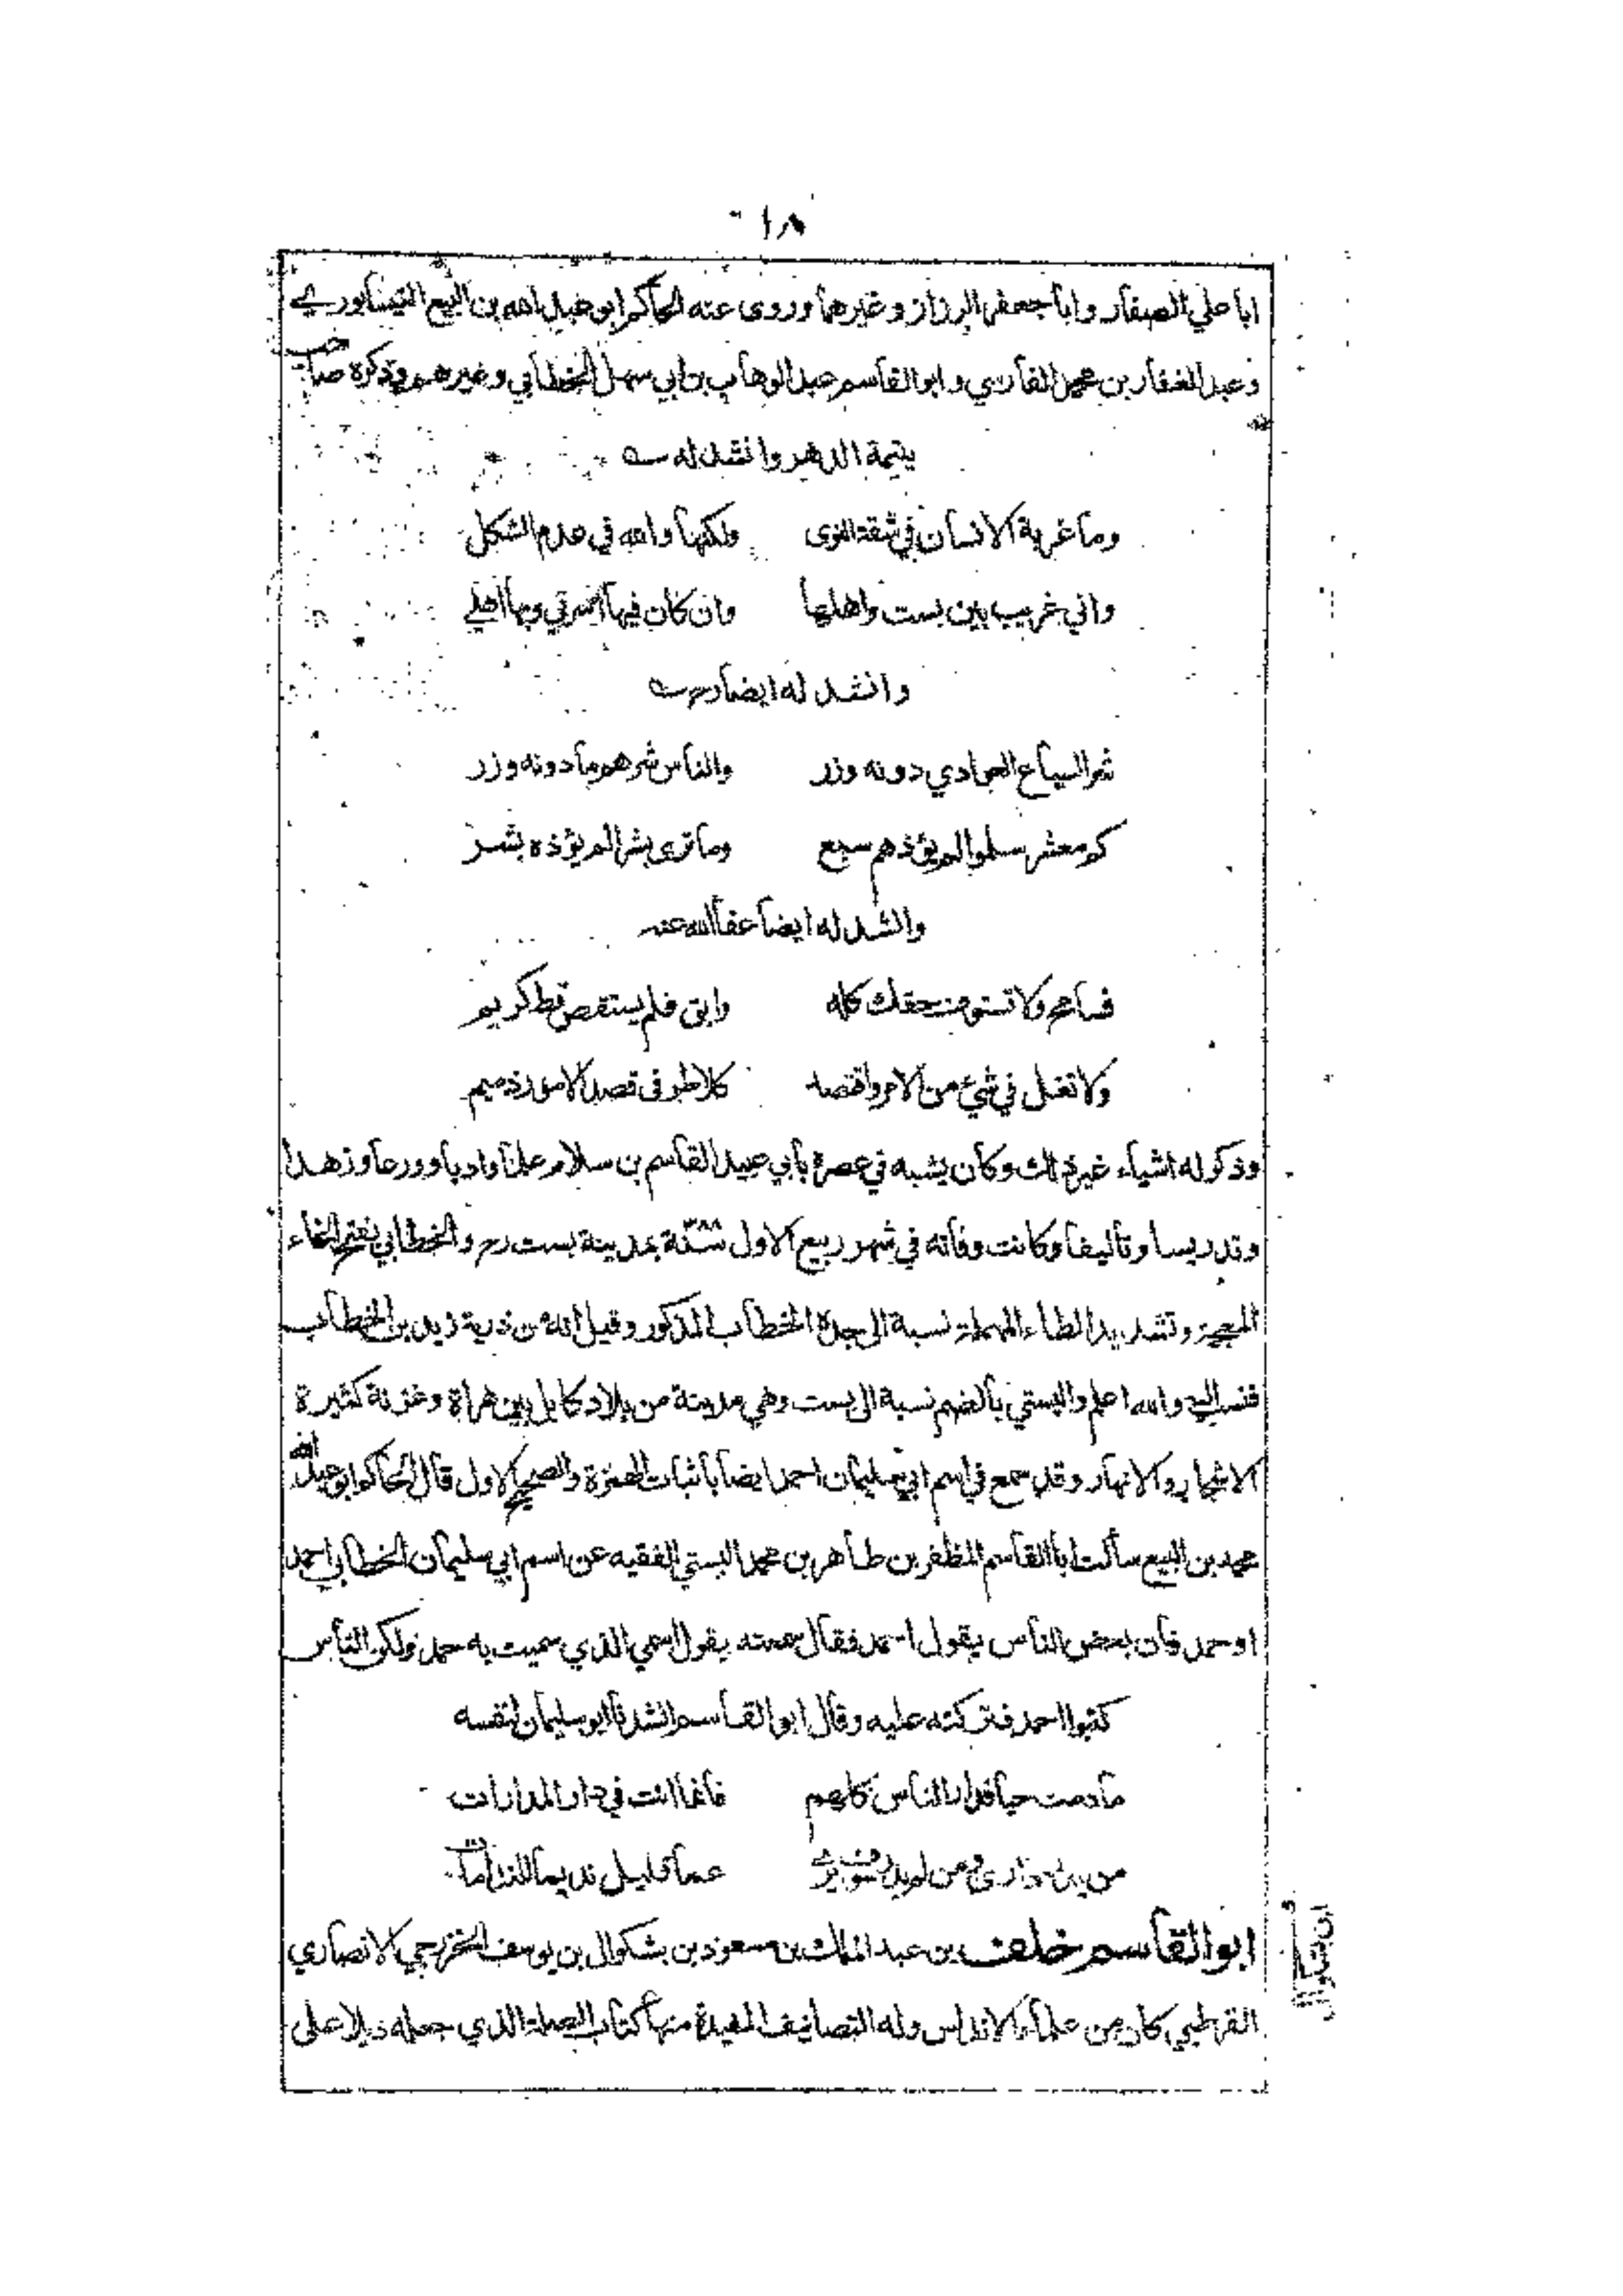 ١٨
ابا علي الصفار وابا جعفر الرزاز وغيرهما وروى عنه الحاكم ابو عبد الله بن البيع النيسابوري
وعبد الغفار بن محمد الفارسي وابو القاسم عبد الوهاب بن ابي سهل الخطابي وغيرهم وذكره صاحب
يتيمة الدهر وانشد له
وما غربة الانسان في شقة النوى ولكنها والله في عدم الشكل
واني غريب بين بست واهلها وان كان فيها اسرتي وبها اهلي
وانشد له ايضا رح
شر السباع العوادي دونه وزر والناس شرهم ما دونه وزر
كم معشر سلموا لم يؤذهم سبع وما ترى بشرا لم يؤذه بشر
وانشد له ايضا عفا الله عنه
فسامح ولا تستوف حقك كله وابق فلم يستقص قط كريم
ولا تغل في شيء من الامر واقتصد كلا طرفي قصد الامور ذميم
وذكر له اشياء غير ذلك وكان يشبه في عصره بابي عبيد القاسم بن سلام علما وادبا وورعا وزهدا
وتدريسا وتاليفا وكانت وفاته في شهر ربيع الاول بمدينة بست رح والخطابي بفتح الخاء
المعجمة وتشديد الطاء المهملة نسبة الى جده الخطاب المذكور وقيل انه من ذرية زيد بن الخطاب
فنسب اليه والله اعلم والبستي بالضم نسبة الى بست وهي مدينة من بلاد كابل بين هراة وغزنة كثيرة
الاشجار والانهار وقد سمع في اسم ابي سليمان احمد ايضا باثبات الهمزة والصحيح الاول قال الحاكم ابو عبد الله
محمد بن البيع سألت ابا القاسم المظفر بن طاهر بن محمد البستي الفقيه عن اسم ابي سليمان الخطابي احمد
او حمد فان بعض الناس يقول احمد فقال سمعته يقول اسمي الذي سميت به حمد ولكن الناس
كتبوا احمد فتركته عليه وقال ابو القاسم انشدنا ابو سليمان لنفسه
ما دمت حيا فدار الناس كلهم فانما انت في دار المدارات
من يدر دارى ومن لم يدر سوف يرى عما قليل نديما للندامات
ابو القاسم خلف بن عبد الملك بن مسعود بن بشكوال بن يوسف الخزرجي الانصاري
ابن بشكوال
القرطبي كان من علماء الاندلس وله التصانيف المفيدة منها كتاب الصلة الذي جعله ذيلا على